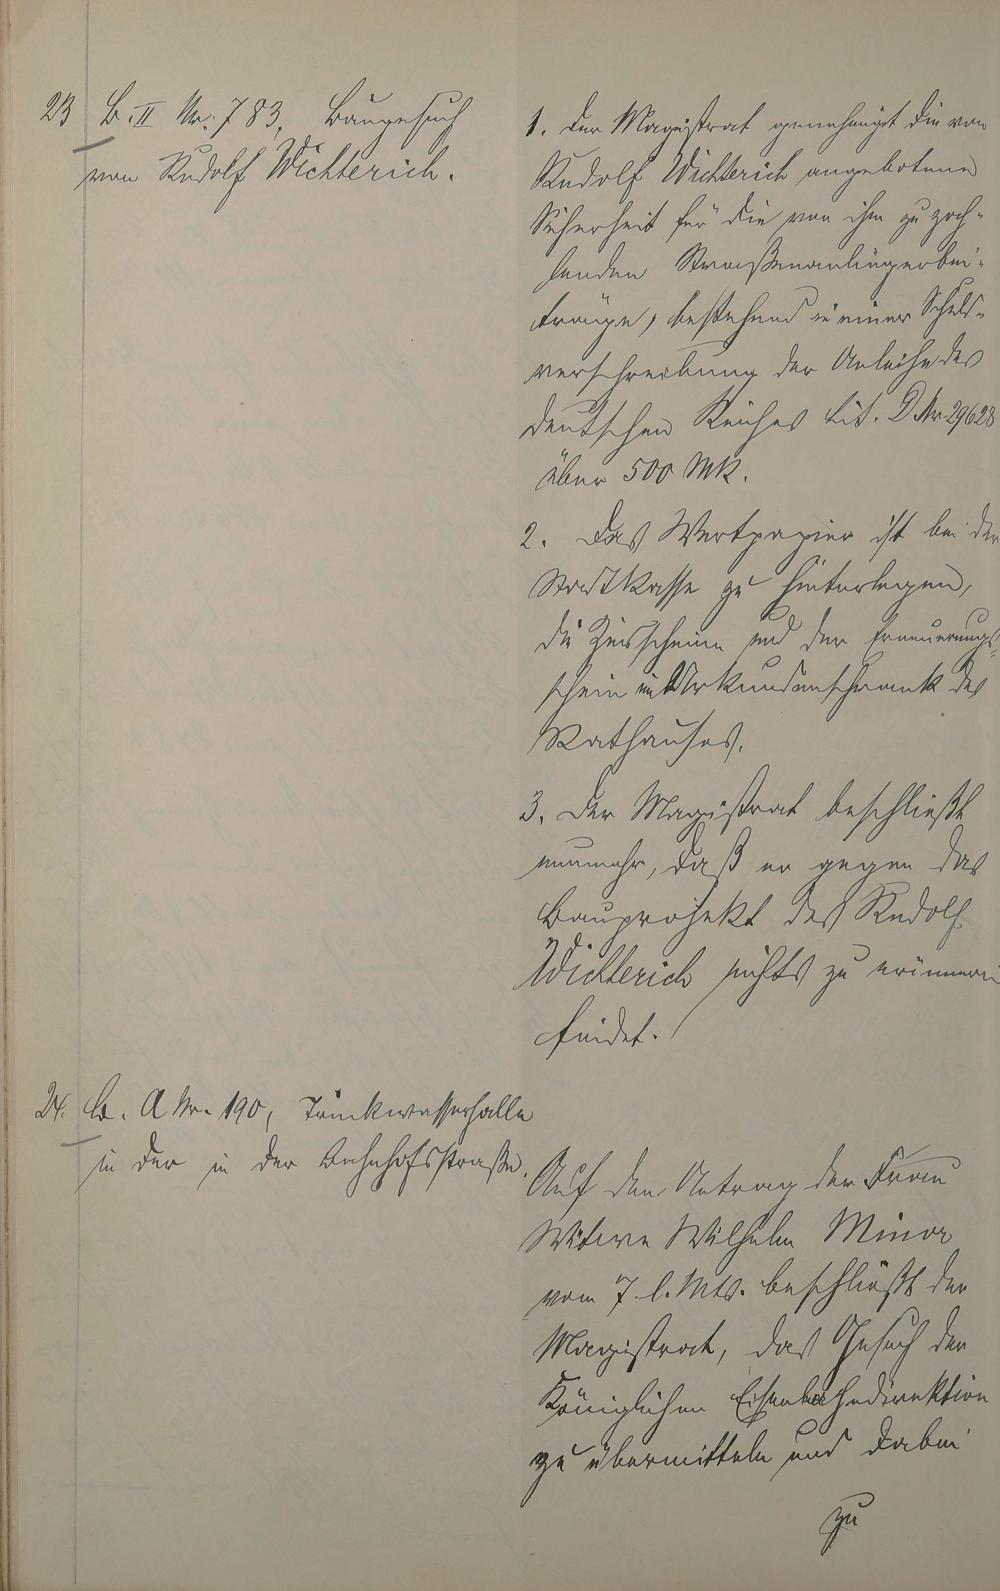 23 B. II Nr. 783, Baugesuch
von Rudolf Wichterich.
1. Der Magistrat genehmigt die von
Rudolf Wichterich angebotene
Sicherheit für die von ihm zu zah-
lenden Straßenanliegerbei-
träge, bestehend in einer Schuld-
verschreibung der Anleihe des
deutschen Reiches Lit. D Nr 29628
über 500 Mk.
2. Das Wertpapier ist bei der
Stadtkasse zu hinterlegen,
die Zinsscheine und der Erneuerungs-
schein im Urkundenschrank des
Rathauses.
3. Der Magistrat beschließt
nunmehr, daß er gegen das
Bauprojekt des Rudolf
Wichterich nichts zu erinnern
findet.
24. B. A Nr. 190, Trinkwasserhalle
in der in der Bahnhofsstraße.
Auf den Antrag der Frau
Witwe Wilhelm Minor
vom 7. l. Mts. beschließt der
Magistrat, das Gesuch der
Königlichen Eisenbahndirektion
zu übermitteln und dabei
zu